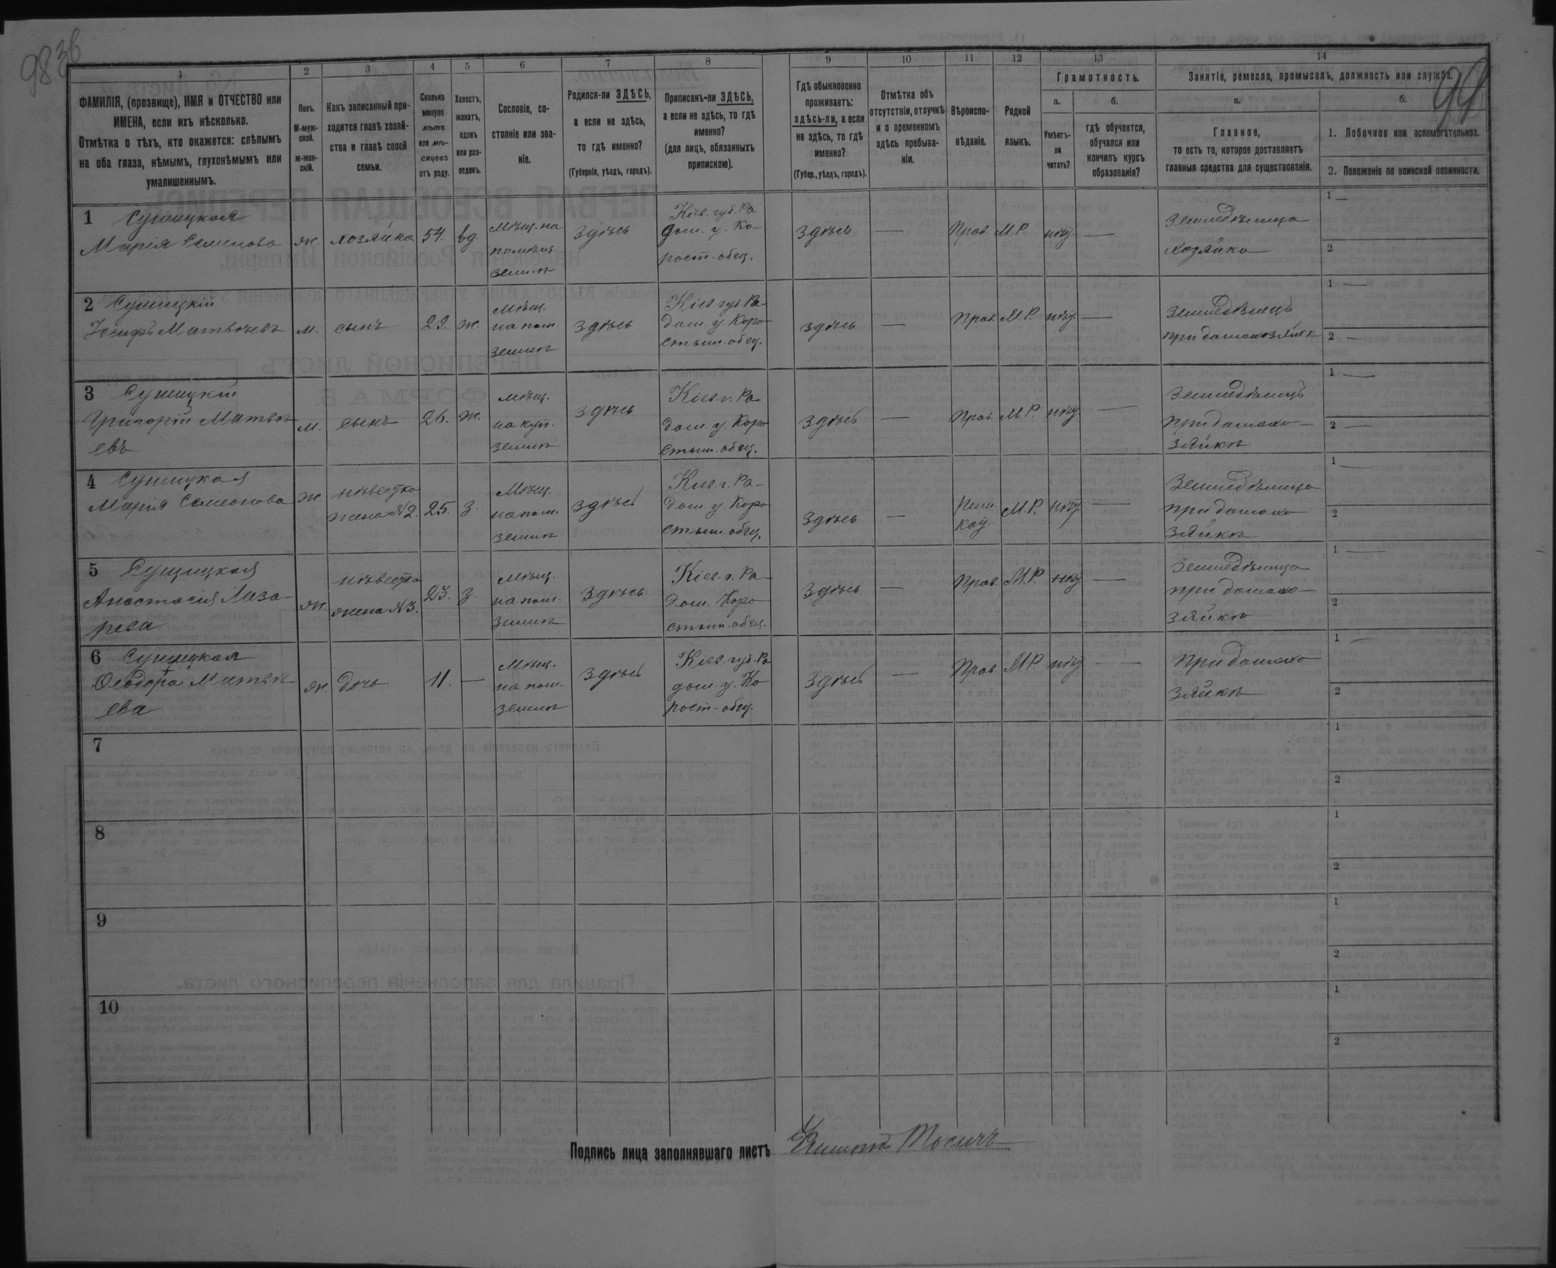 1
2
3
4
5
6
7
8
9
10
11
12
13
14
ФАМИЛІЯ, (прозвище), ИМЯ и ОТЧЕСТВО или
ИМЕНА, если ихъ нѣсколько.
Отмѣтка о тѣхъ, кто окажется: слѣпымъ
на оба глаза, нѣмымъ, глухонѣмымъ или
умалишеннымъ.
Полъ.
М-муж-
ской.
ж-жен-
скій.
Какъ записанный при-
ходится главѣ хозяй-
ства и главѣ своей
семьи.
Сколько
минуло
лѣтъ
или мѣ-
сяцевъ
отъ роду.
Холостъ,
женатъ,
вдовъ
или раз-
веденъ.
Сословіе, со-
стояніе или зва-
ніе.
Родился-ли ЗДѢСЬ,
а если не здѣсь,
то гдѣ именно?
(Губернія, уѣздъ, городъ).
Приписанъ-ли ЗДѢСЬ,
а если не здѣсь, то гдѣ
именно?
(для лицъ, обязанныхъ
припискою).
Гдѣ обыкновенно
проживаетъ:
здѣсь-ли, а если
не здѣсь, то гдѣ
именно?
(Губер., уѣздъ, городъ).
Отмѣтка объ
отсутствіи, отлучкѣ
и о временномъ
здѣсь пребыва-
ніи.
Вѣроиспо-
вѣданіе.
Родной
языкъ.
Грамотность.
а.
Умѣетъ-
ли
читать?
б.
гдѣ обучается,
обучался или
кончилъ курсъ
образованія?
Занятіе, ремесло, промыселъ, должность или служба.
а.
Главное,
то есть то, которое доставляетъ
главныя средства для существованія.
б.
1. Побочное или вспомогательное.
2. Положеніе по воинской повинности.
99
1 Сушицкая
Марія Семенова
ж. хозяйка 54. вд.
Мѣщ. на
земли
здѣсь
Кіев. губ. Ра
дом. у. Ко-
рост. общ.
здѣсь — Прав М.Р. —
Земледѣлица
хозяйка
1 —
2
2 Сушицкій
Іосифъ Матвѣевъ
м. сынъ 29. ж.
Мѣщ.
на пом.
земли
здѣсь
Кіев губ Ра-
дом. у. Коро
стыш. общ.
здѣсь — Прав М.Р. —
Земледѣлецъ
при домохозяйкѣ
1 —
2 —
3 Сушицкій
Григорій Матвѣ
евъ
м. сынъ 26. ж.
мѣщ.
земли
здѣсь
Кіев г. Ра-
дом. у. Коро
стыш. общ.
здѣсь — Прав М.Р. —
Земледѣлецъ
при домохо-
зяйкѣ
1 —
2 —
4 Сушицкая
Марія Семенова
ж. невестка
жена №2. 25. з.
Мѣщ.
на пом.
земли
здѣсь
Кіев г. Ра-
дом. у. Коро
стыш. общ.
здѣсь — М.Р. —
Земледѣлица
при домохо
зяйкѣ
1 —
2
5 Сушицкая
Анастасія Лаза-
рева
ж. невестка
жена №3. 23. з.
Мѣщ.
на пом.
земли
здѣсь
Кіев г. Ра-
дом. Коро
стыш. общ.
здѣсь — Прав М.Р. —
Земледѣлица
при домохо-
зяйкѣ
1 —
2
6 Сушицкая
Феодора Матвѣ
ева
ж. дочь 11. —
Мѣщ.
на пом.
земли
здѣсь
Кіев губ. Ра
дом. у. Ко
рост. общ.
здѣсь — Прав М.Р. —
При домохо
зяйкѣ
1 —
2
7
1
2
8
1
2
9
1
2
10
1
2
Подпись лица заполнявшаго листъ